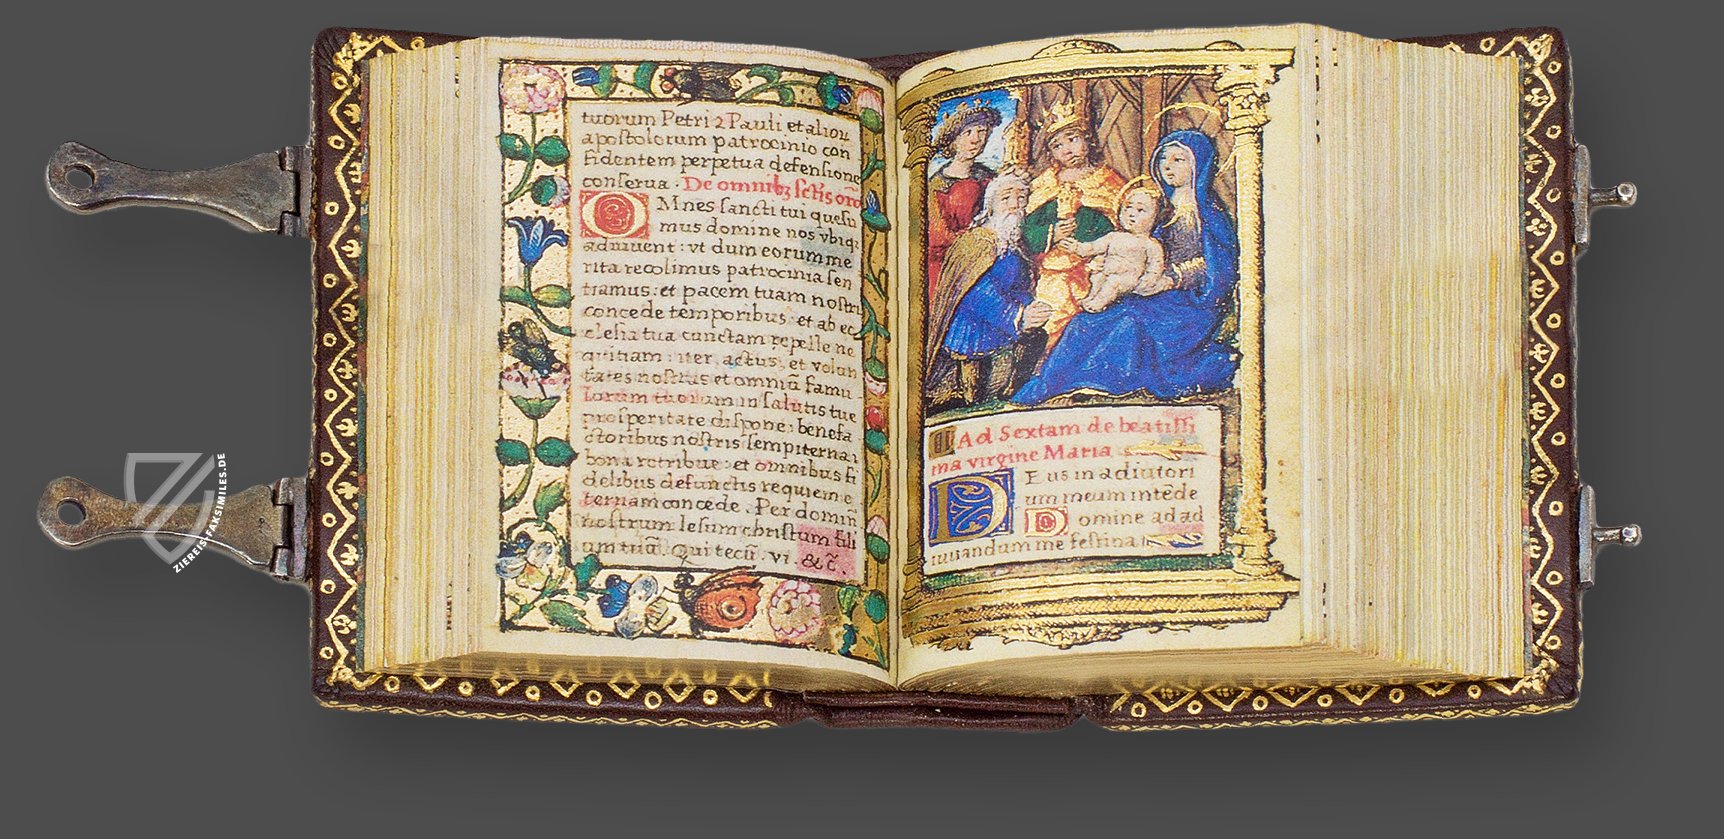 tuorum Petri 2 Pauli et aliorū
apostolorum patrocinio con
fidentem perpetua defensione
conserua. De omnibȝ sc̄tis orō
OMnes sancti tui quesu
mus domine nos vbiqȝ
adiuuent: vt dum eorum me
rita recolimus patrocinia sen
tiamus: et pacem tuam nostri
concede temporibus: et ab ec
clesia tua cunctam repelle ne
quitiam: iter, actus, et volun
tates nostras et omniū famu
lorum tuorum in salutis tue
prosperitate dispone: benefa
ctoribus nostris sempiterna
bona retribue: et omnibus fi
delibus defunctis requiem e
ternam concede. Per dominū
nostrum Iesum christum fili
um tuū. Qui tecū. vi &c̄.
Ad Sextam de beatissi
ma virgine Maria
DEus in adiutori
um meum intēde
Domine ad ad
iuuandum me festina
ZIEREIS-FAKSIMILES.DE